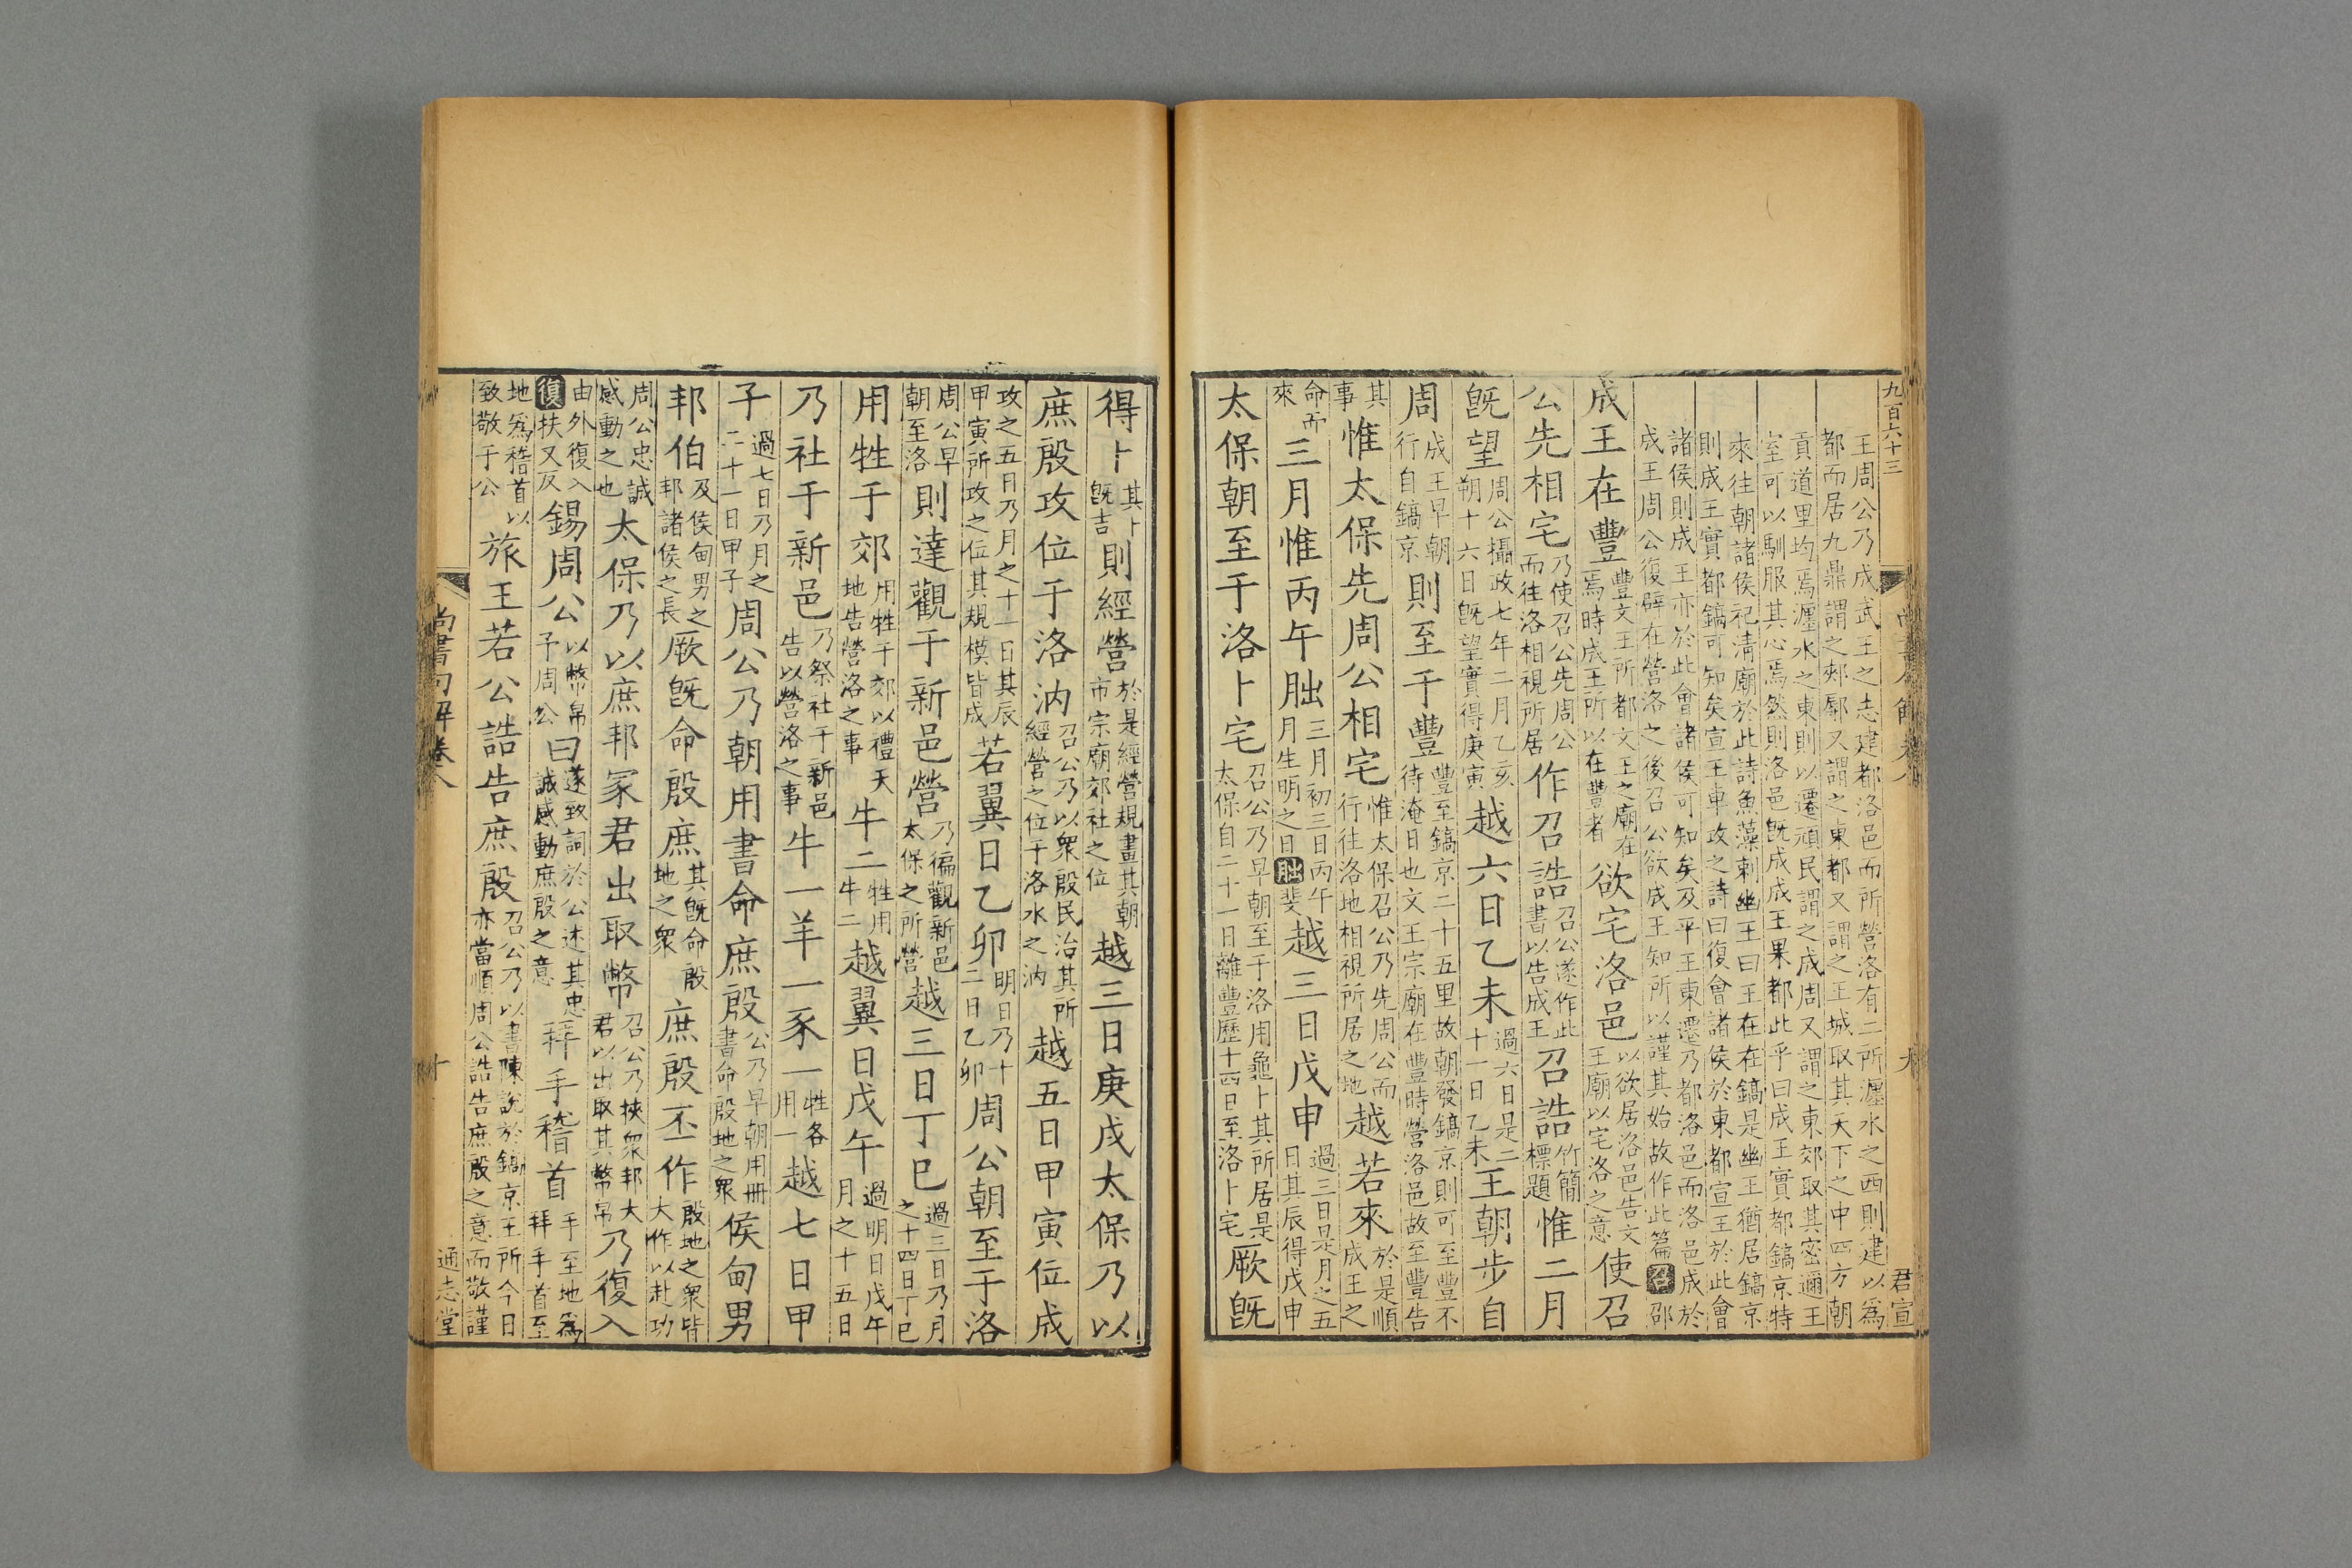 九百六十三
君宣
王周公乃成武王之志建都洛邑而所營洛有二所瀍水之西則建以爲
都而居九鼎謂之郟鄏又謂之東都又謂之王城取其天下之中四方朝
貢道里均焉瀍水之東則以遷頑民謂之成周又謂之東郊取其密邇王
室可以馴服其心焉然則洛邑旣成成王果都此乎曰成王實都鎬京特
來往朝諸侯祀淸廟於此詩魚藻刺幽王曰王在在鎬是幽王猶居鎬京
則成王實都鎬可知矣宣王車攻之詩曰復會諸侯於東都宣王於此會
諸侯則成王亦於此會諸侯可知矣及平王東遷乃都洛邑而洛邑成於
成王周公復辟在營洛之後召公欲成王知所以謹其始故作此篇召邵
成王在豐豐文王所都文王之廟在焉時成王所以在豐者欲宅洛邑以欲居洛邑告文王廟以宅洛之意使召
公先相宅乃使召公先周公而往洛相視所居作召誥召公遂作此書以告成王召誥竹簡標題惟二月
旣望周公攝政七年二月乙亥朔十六日旣望實得庚寅越六日乙未過六日是二十一日乙未王朝步自
周成王早朝行自鎬京則至于豐豐至鎬京二十五里故朝發鎬京則可至豐不待淹日也文王宗廟在豐時營洛邑故至豐告
其事惟太保先周公相宅惟太保召公乃先周公而行往洛地相視所居之地越若來於是順成王之
命而來三月惟丙午朏三月初三日丙午月生明之日朏斐越三日戊申過三日是月之五日其辰得戊申
太保朝至于洛卜宅召公乃早朝至于洛用龜卜其所居是太保自二十一日離豐歷十四日至洛卜宅厥旣
得卜其卜旣吉則經營於是經營規畫其朝市宗廟郊社之位越三日庚戌太保乃以
庶殷攻位于洛汭召公乃以衆殷民治其所經營之位于洛水之汭越五日甲寅位成
攻之五日乃月之十一日其辰甲寅所攻之位其規模皆成若翼日乙卯明日乃十二日乙卯周公朝至于洛
周公早朝至洛則達觀于新邑營乃徧觀新邑太保之所營越三日丁巳過三日乃月之十四日丁巳
用牲于郊用牲于郊以禮天地告營洛之事牛二牲用牛二越翼日戊午過明日戊午月之十五日
乃社于新邑乃祭社于新邑告以營洛之事牛一羊一豕一牲各用一越七日甲
子過七日乃月之二十一日甲子周公乃朝用書命庶殷公乃早朝用冊書命殷地之衆侯甸男
邦伯及侯甸男之邦諸侯之長厥旣命殷庶其旣命殷地之衆庶殷丕作殷地之衆皆大作以赴功
周公忠誠感動之也太保乃以庶邦冢君出取幣召公乃挾衆邦大君以出取其幣帛乃復入
由外復入復扶又反錫周公以幣帛予周公曰遂致詞於公述其忠誠感動庶殷之意拜手稽首手至地爲拜手首至
地爲稽首以致敬于公旅王若公誥告庶殷召公乃以書陳說於鎬京王所今日亦當順周公誥告庶殷之意而敬謹
尚書句解卷八
十
通志堂